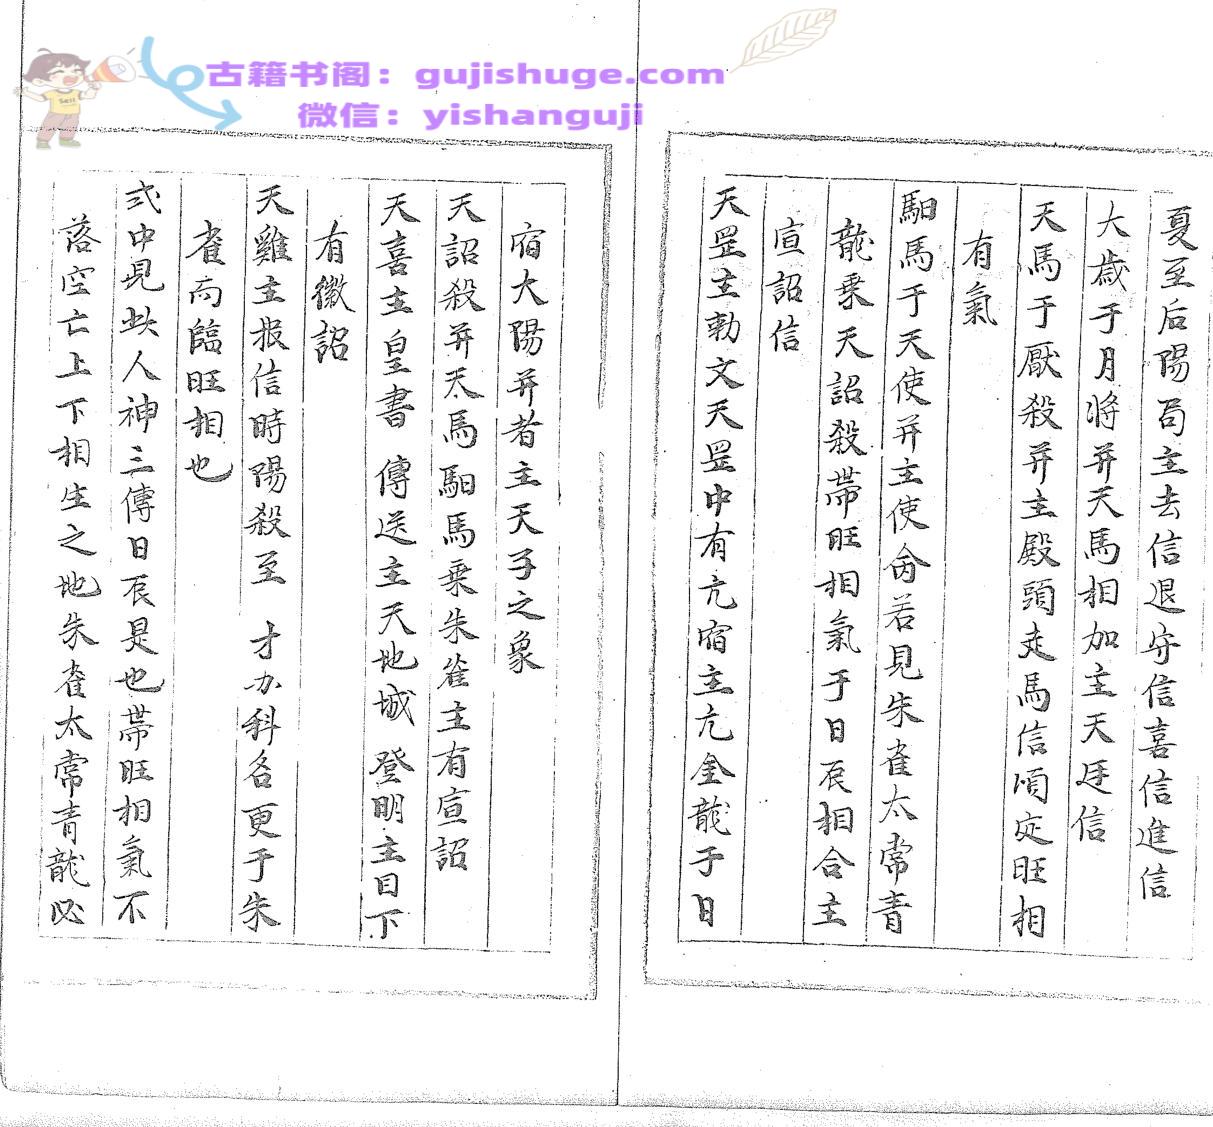 古籍书阁：gujishuge.com
微信：yishanguji
夏至后陽局主去信退守信喜信進信
大歲于月將并天馬相加主天廷信
天馬于厭殺并主殿頭走馬信頃定旺相
有氣
馹馬于天使并主使命若見朱雀太常青
龍乗天詔殺帶旺相氣于日辰相合主
宣詔信
天罡主勅文天罡中有亢宿主亢金龍子日
宿大陽并者主天子之象
天詔殺并天馬馹馬乗朱雀主有宣詔
天喜主皇書 傳送主天地城 登明主目下
有徵詔
天雞主报信時陽殺至 才办科名更于朱
雀而臨旺相也
式中見此人神三傳日辰是也帯旺相氣不
落空亡上下相生之地朱雀太常青龍必